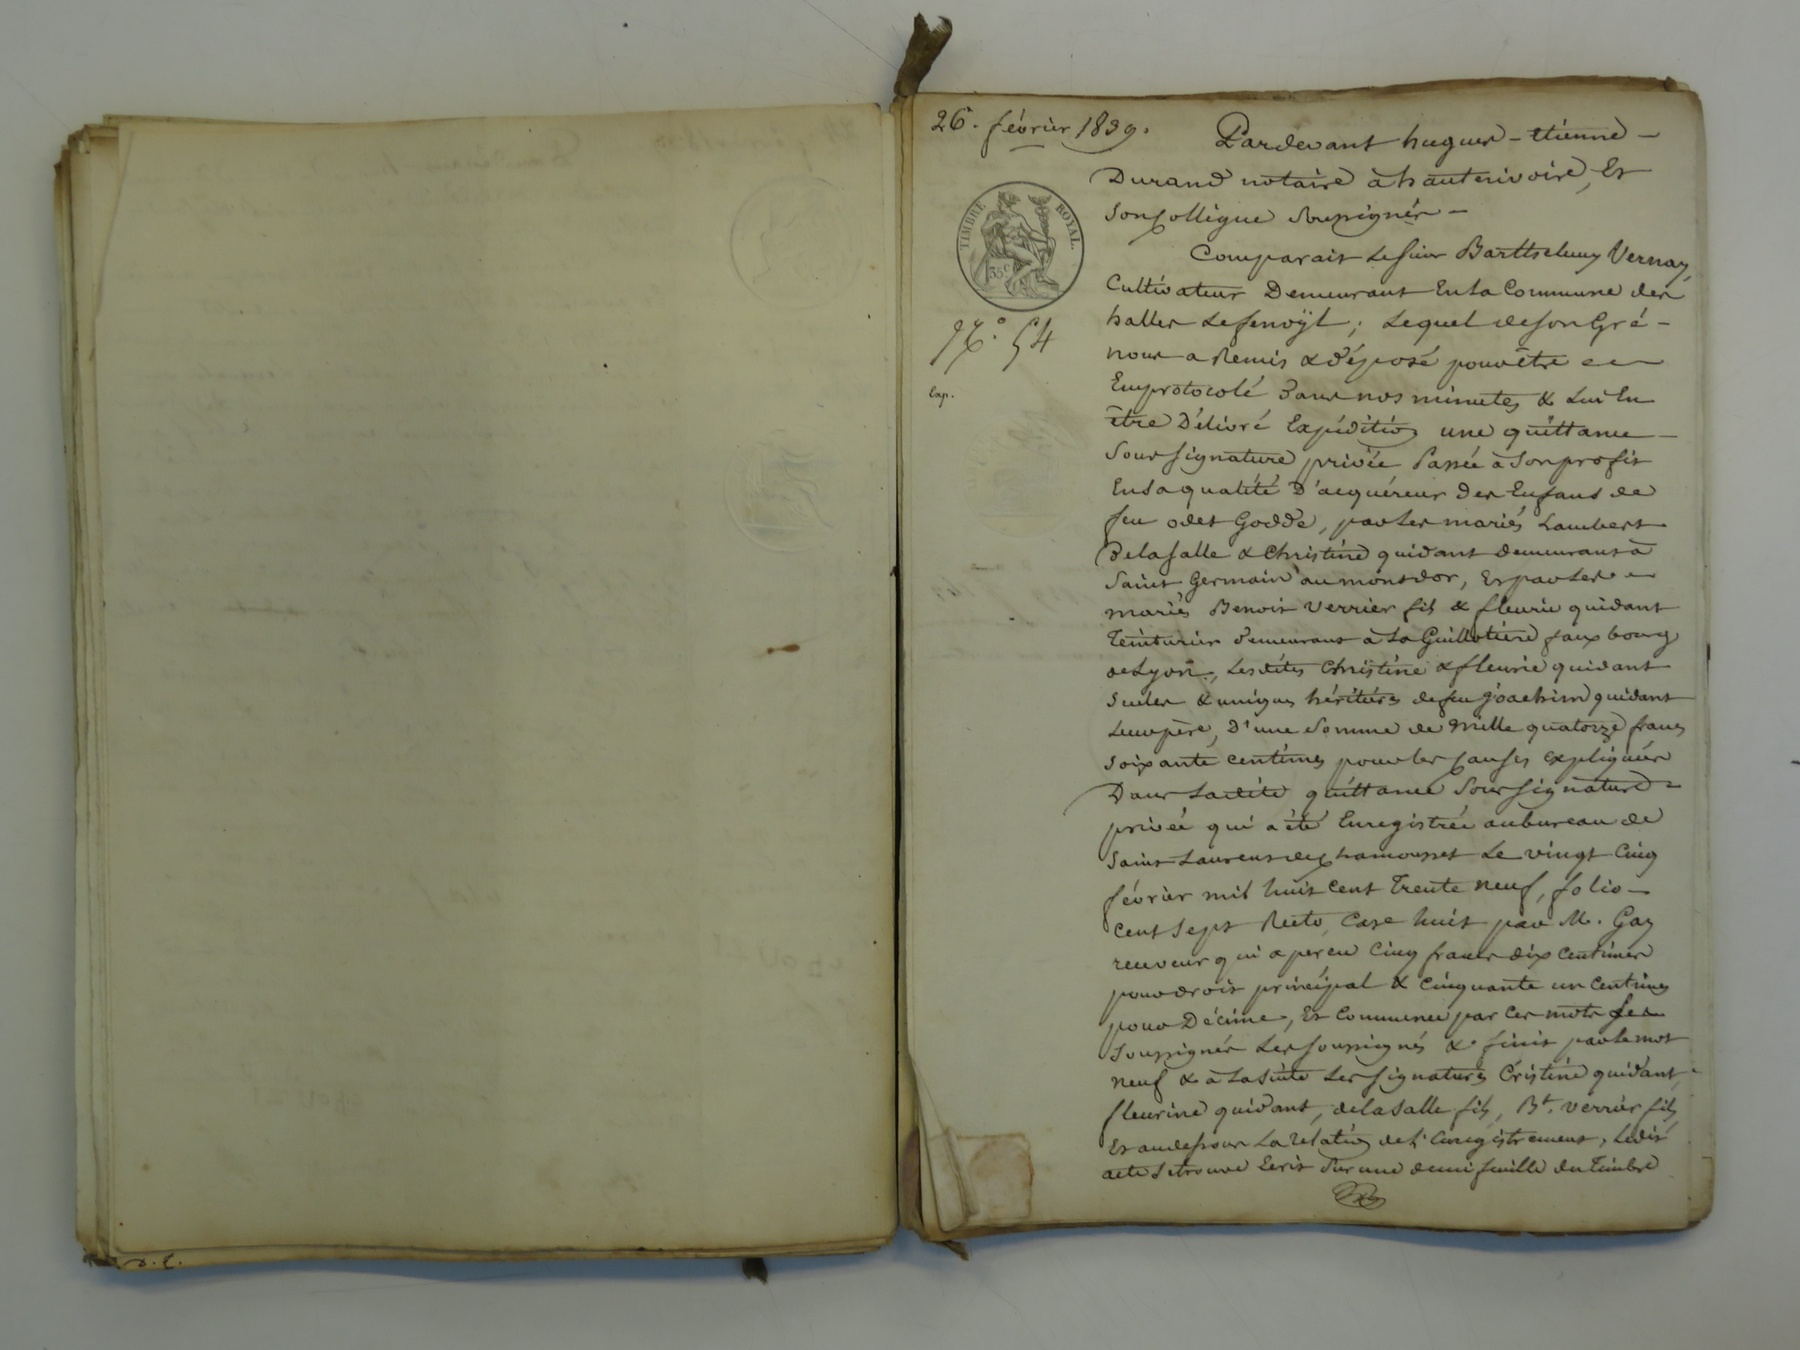 26. février 1839.
Pardevant hugues-étienne-
Durand notaire à hauterivoire, Et
son collègue soussignés-
TIMBRE ROYAL.
35c
Comparait le sieur Barthelemy Vernay
Cultivateur Demeurant En la Commune des
halles Lefenoÿl; Lequel de son Gré-
N.º 54
nous a Remis & déposé pour être
Exp.
Emprotocolé dans nos minutes & Lui En
être Délivré Expédition une quittance-
sous signature privée Passée à son profit
En sa qualité D'acquéreur des Enfans de
feu odet Godde, par les mariés Lambert
Delasalle & Christine quidant demeurant à
Saint Germain au montdor, Et par les
mariés Benoit Verrier fils & fleurie quidant
teinturier demeurant à la Guillotière faux bourg
de Lyon, Lesdites Christine & fleurie quidant
seules & uniques héritières de feu joachim quidant
Leur père, D'une Somme de Mille quatorze francs
soixante centimes pour les causes expliquées
Dans Ladite quittance Sous signature-
privée qui a été Enregistrée au bureau de
saint Laurent de chamousset Le vingt Cinq
février mil huit cent Trente neuf, folio-
cent sept Recto, Case huit par M. Gay
receveur qui a perçu Cinq francs dix centimes
pour droit principal & cinquante un centimes
pour Décime, Et Commence par ces mots
soussignés Les soussignés & finit par le mot
neuf & à la suite Les signatures Cristine quidant,
fleurine quidant, delasalle fils, Bt. verrier fils
Et au dessous La relation de l'Enregistrement, Ledit
acte se trouve Ecrit sur une demi feuille du timbre
D. C.